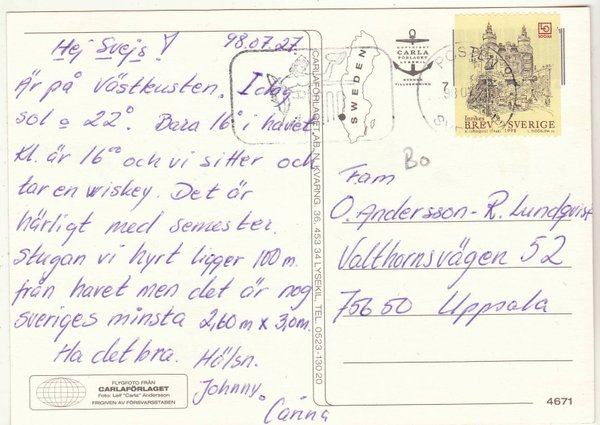 Hej Svejs! 98.07.27.
Är på Västkusten. I dag
sol o 22°. Bara 16° i havet
Kl. är 16⁰⁰ och vi sitter och
tar en wiskey. Det är
härligt med semester.
Stugan vi hyrt ligger 100 m.
från havet men det är nog
sveriges minsta 2,60 m x 3,0 m.
Ha det bra. Hälsn.
Johnny
Carina
FLYGFOTO FRÅN
CARLAFÖRLAGET
Foto: Leif "Carla" Andersson
FRIGIVEN AV FÖRSVARSSTABEN
CARLAFÖRLAGET AB, N. KVARNG. 36, 453 34 LYSEKIL, TEL. 0523-130 20
SWEDEN
COPYRIGHT
CARLA
FÖRLAGET
LYSEKIL
Inrikes
BREV SVERIGE
1998
Bo
Fam
O. Andersson - R. Lundqvist
Valthornsvägen 52
756 50 Uppsala
4671